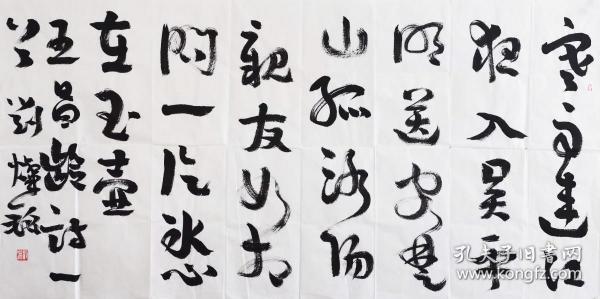 寒雨連江
夜入吴平
明送客楚
山孤洛陽
親友如相
問一片冰心
在玉壶
王昌齡詩一
首 劉燦銘
孔夫子旧书网
www.kongfz.com